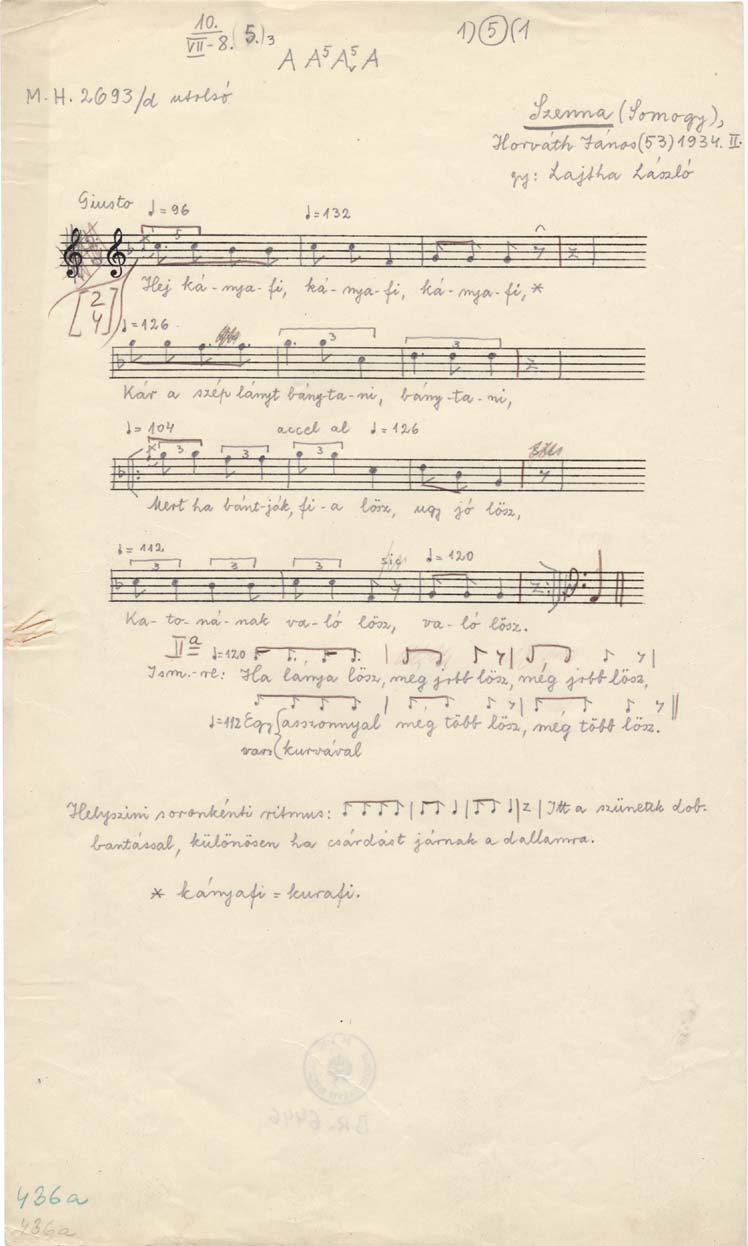 10.
VII-8. (5.)3
1) 5 (1
A A5 A5v A
M. H. 2693/d utolsó
Szenna (Somogy),
Horváth János (53) 1934. II.
gy: Lajtha László
Giusto ♩=96 ♩=132
5
Hej ká-nya-fi, ká-nya-fi, ká-nya-fi,*
[2 4]
♩=126
3 3
Kár a szép lányt bány-ta-ni, bány-ta-ni,
♩=104 accel al ♩=126
3 3 3
Mert ha bánt-ják, fi-a lösz, ugy jó lösz,
♩=112 sic ♩=120
3 3 3
Ka-to-ná-nak va-ló lösz, va-ló lösz.
IIa ♩=120
Ism.-re: Ha lánya lösz, még jobb lösz, még jobb lösz,
♩=112 Egy {asszonnyal még több lösz, még több lösz.
vars {kurvával
Helyszini soronkénti ritmus: Itt a szünetek dob-
bantással, különösen ha csárdást járnak a dallamra.
* kányafi = kurafi.
BR-6446
436a
436a